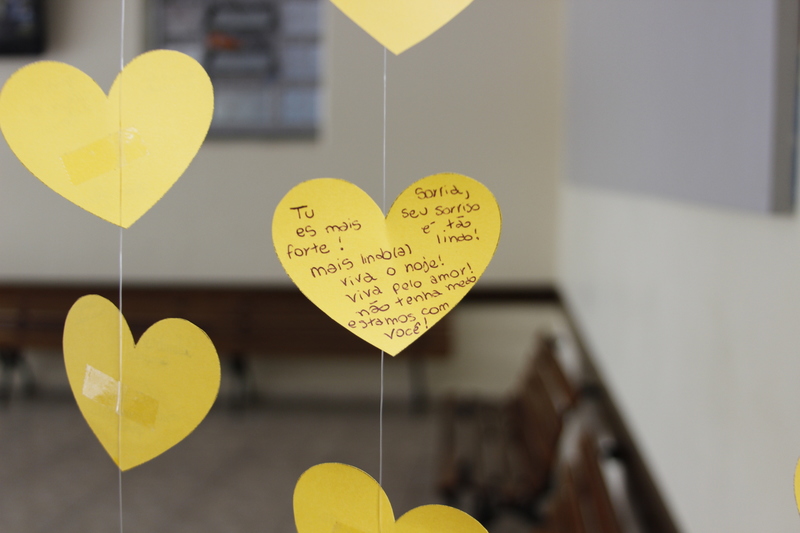 Tu
es mais
forte!
Sorria,
seu sorriso
é tão
lindo!
mais lindo(a)
viva o hoje!
viva pelo amor!
não tenha medo
estamos com
você!